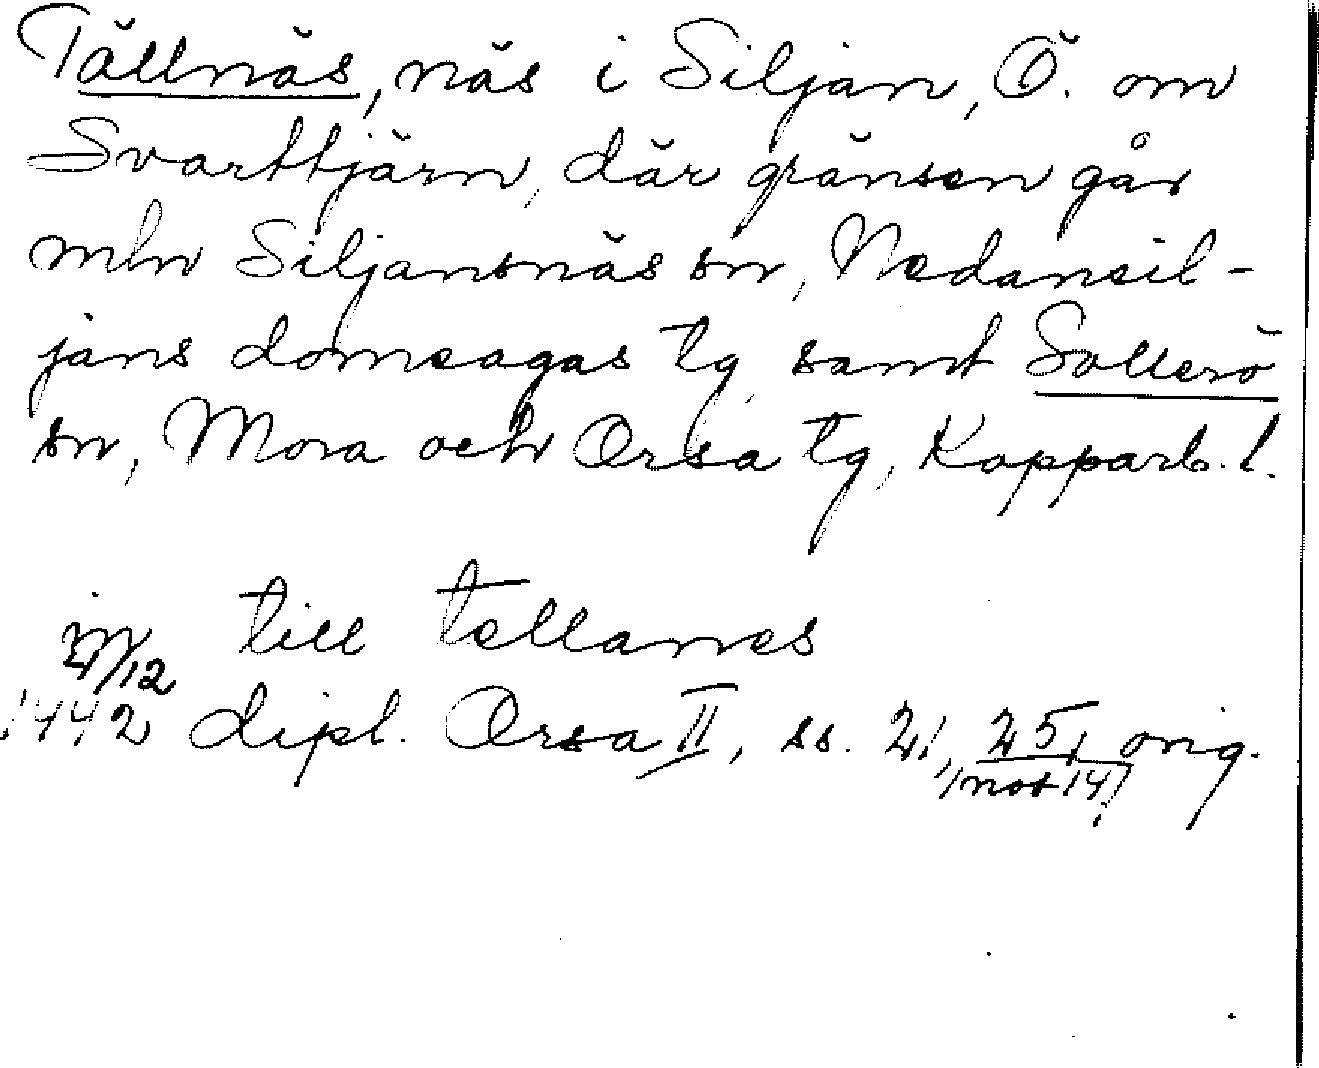 Tällnäs, näs i Siljan, Ö. om
Svarttjärn, där gränsen går
mln Siljansnäs sn, Nedansil-
jans domsagas tg samt Sollerö
sn, Mora och Orsa tg, Kopparb. l.
till tellanes
1442 dipl. Orsa II, ss. 21, 25, orig.
not 14